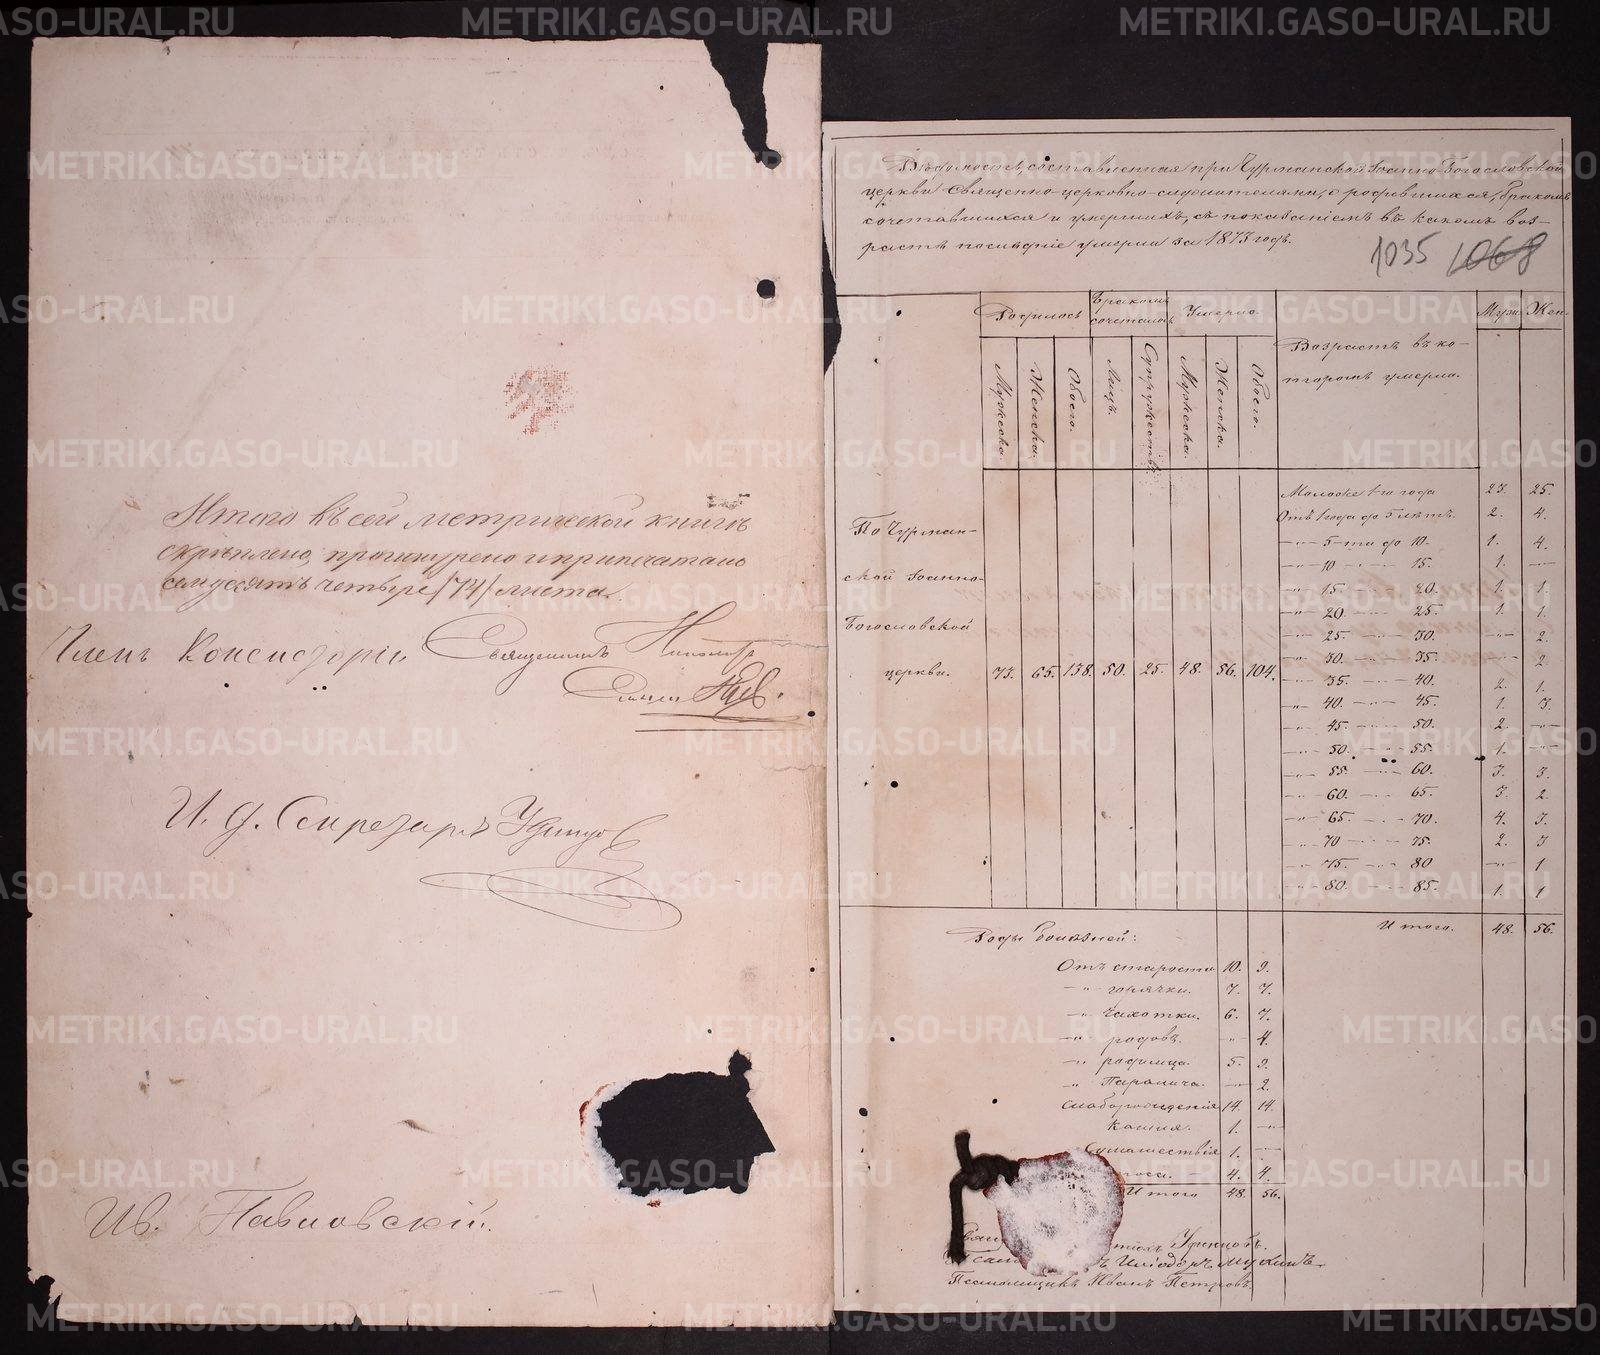 Итого въ сей метрической книгѣ
скрѣплено, прошнурено и припечатано
семдесятъ четыре /74/ листа.
Членъ Консисторіи Священникъ
И. д. Секретаря Удинцов
Ив. Павловскій.
Вѣдомость, составленная при Чурманской Іоанно-Богословской
церкви священно-церковно-служителями, о родившихся, бракомъ
сочетавшихся и умершихъ, съ показаніемъ въ какомъ воз-
растѣ послѣдніе умерли за 1873 годъ.
1035 1068
Родилось Бракомъ сочеталось Умерло Возрастъ въ ко- Муж. Жен.
тором умерли.
Мужска. Женска. Обоего. Лицъ. Супружествъ Мужска. Женска. Обоего.
Моложе 1го года 23. 25.
По Чурман- Отъ 1 года до 5 лѣтъ. 2. 4.
-"- 5-ти до 10. 1. 4.
ской Іоанно- -"- 10 -"- 15. 1. -"-
-"- 15. -"- 20. 1. 1.
Богословской -"- 20. -"- 25. 1. 1.
-"- 25. -"- 30. -"- 2.
церкви. 73. 65. 138. 50. 25. 48. 56. 104. -"- 30. -"- 35. -"- 2
-"- 35. -"- 40. 2. 1.
-"- 40. -"- 45. 1. 3.
-"- 45. -"- 50. 2. -"-
-"- 50. -"- 55. 1. -"-
-"- 55. -"- 60. 3. 3.
-"- 60. -"- 65. 3. 2
-"- 65. -"- 70. 4. 3.
-"- 70 -"- 75. 2. 3
-"- 75. -"- 80 -"- 1
-"- 80. -"- 85. 1. 1
Роды болѣзней: Итого. 48. 56.
Отъ старости 10. 9.
-"- горячки. 7. 7.
-"- чахотки. 6. 7.
-"- родовъ. -"- 4.
-"- родимца. 5. 9.
-"- Паралича. -"- 2.
слаборожденія 14. 14.
кашля. 1. -"-
Сумашествія 1. -"-
4. 4.
Итого 48. 56.
Удинцовъ.
Иліодоръ
Псаломщикъ Иванъ Петровъ
METRIKI.GASO-URAL.RU